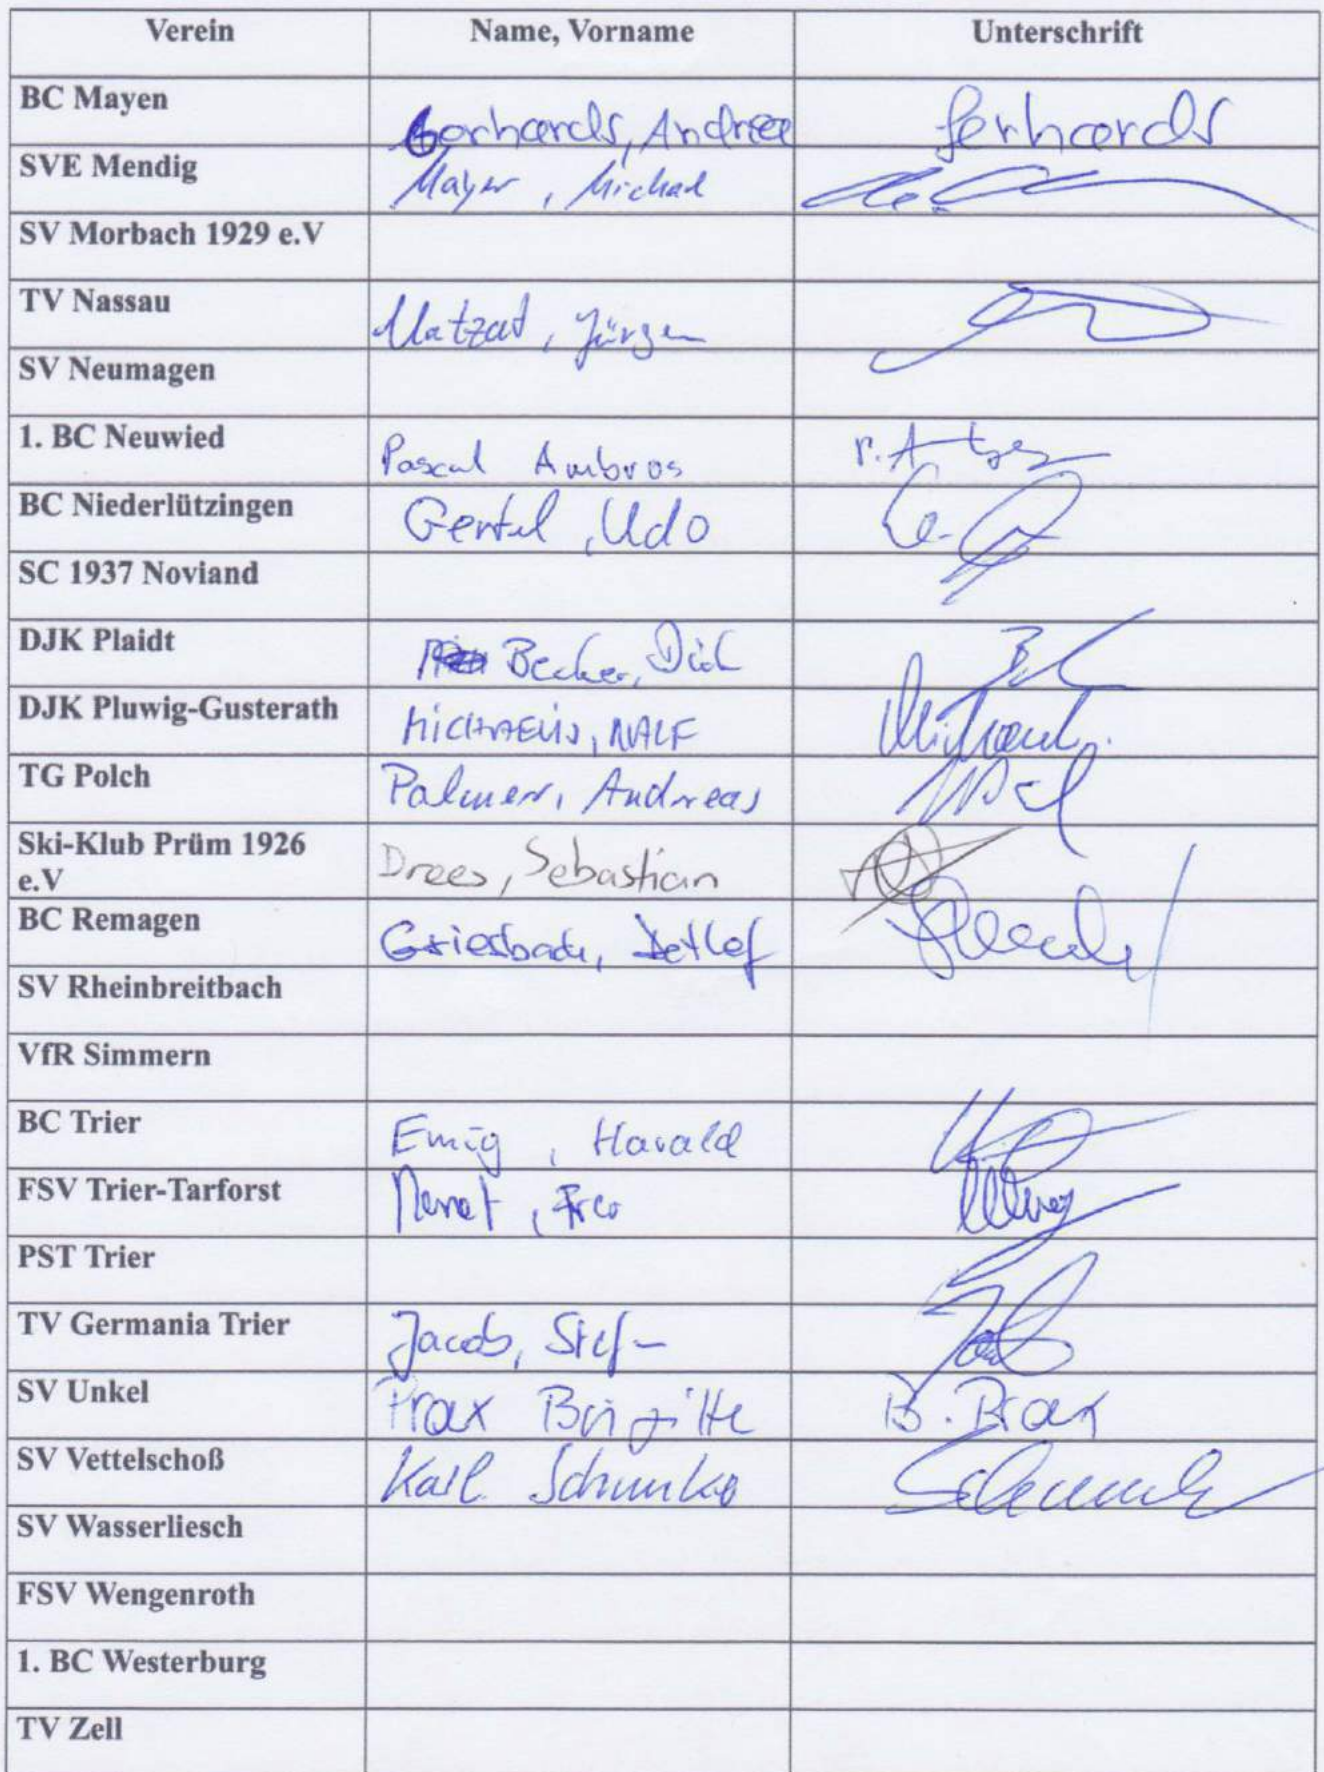 Verein Name, Vorname Unterschrift
BC Mayen
Gerhards, Andrea Gerhards
SVE Mendig
Mayer, Michael
SV Morbach 1929 e.V
TV Nassau
Matzat, Jürgen
SV Neumagen
1. BC Neuwied
Pascal Ambros
BC Niederlützingen
Gertel, Udo
SC 1937 Noviand
DJK Plaidt
Becker, Dirk
DJK Pluwig-Gusterath
MICHAELIS, RALF
TG Polch
Palmen, Andreas
Ski-Klub Prüm 1926
e.V
Drees, Sebastian
BC Remagen
Griesbach, Detlef
SV Rheinbreitbach
VfR Simmern
BC Trier
Emig, Harald
FSV Trier-Tarforst
PST Trier
TV Germania Trier
Jacob, Stefan
SV Unkel
Prax Birgitte B. Prax
SV Vettelschoß
Karl
SV Wasserliesch
FSV Wengenroth
1. BC Westerburg
TV Zell